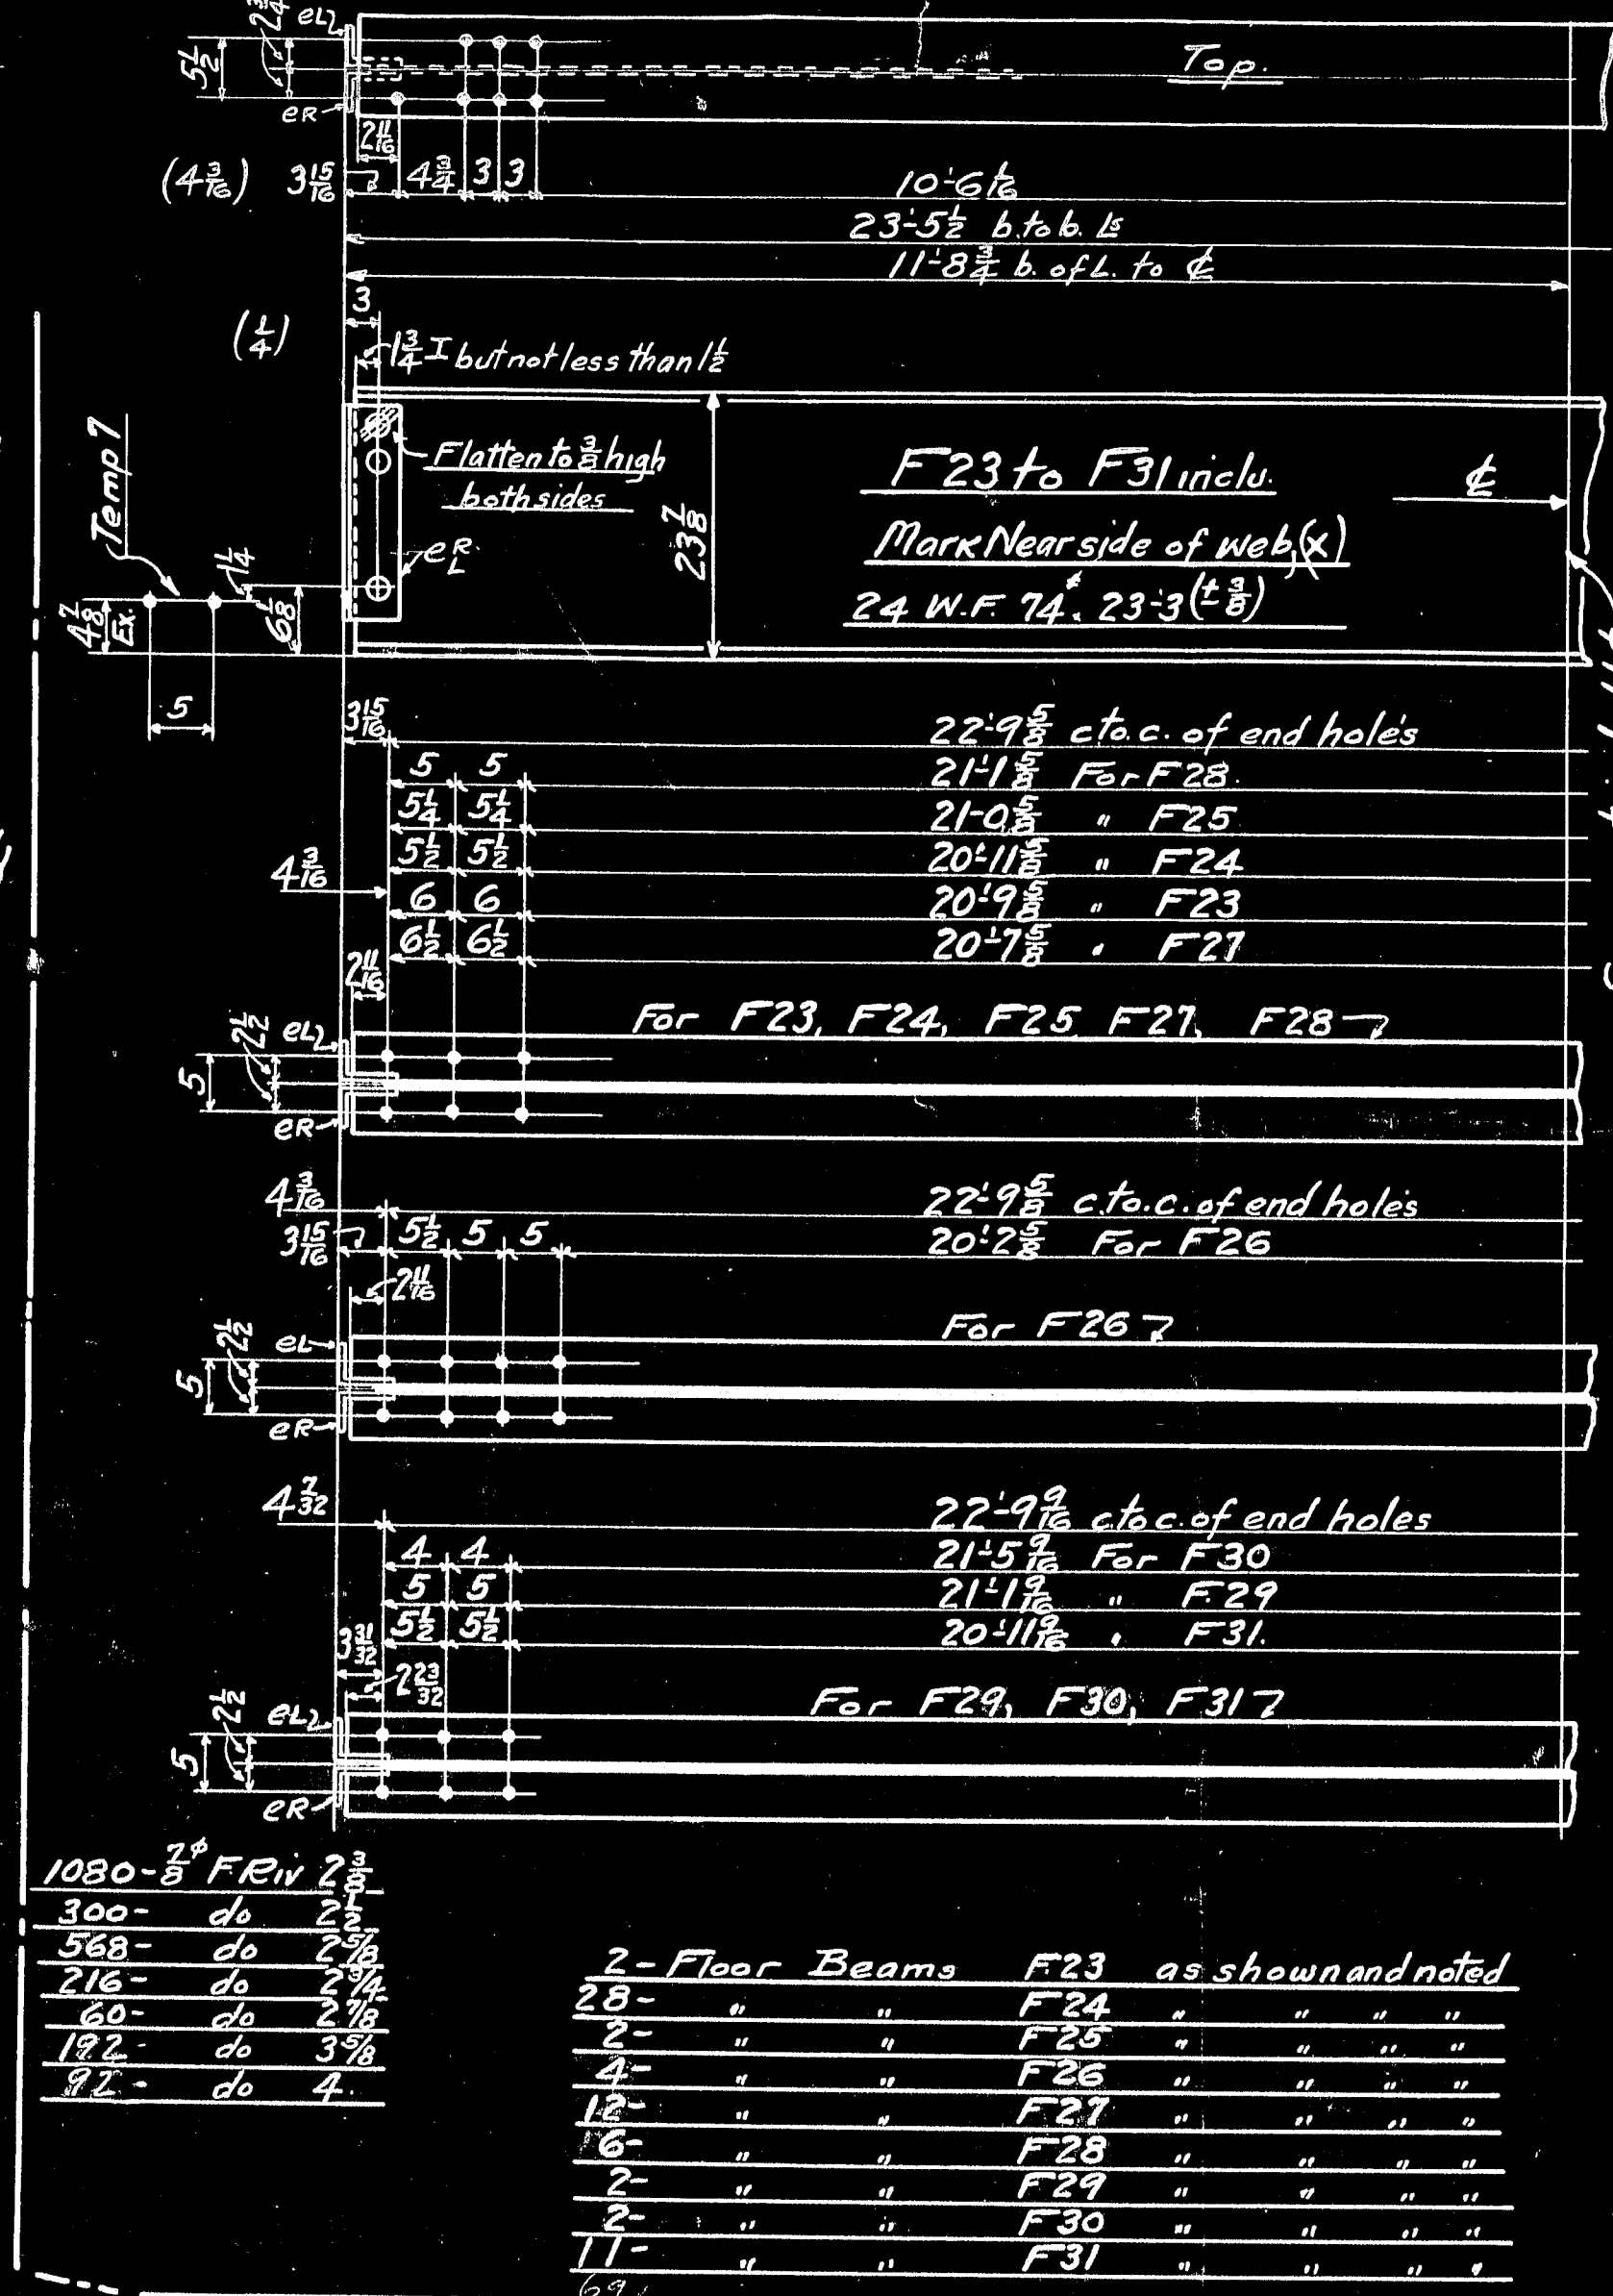 2 3/4
eL
5 1/2
Top.
eR
2 11/16
(4 3/16) 3 15/16 4 3/4 3 3
10'-6 1/16
23'-5 1/2 b. to b. Ls
11'-8 3/4 b. of L. to ℄
3
(1/4)
1 3/4 I but not less than 1 1/2
Temp 7
Flatten to 3/8 high
both sides
23 7/8
F23 to F31 inclu.
℄
Mark Near side of web,(x)
24 W.F. 74# 23'-3 (± 3/8)
e R L
1/4
4 7/8 Ex.
6 1/8
5
3 15/16
22'-9 5/8 c.to.c. of end holes
5 5 21'-1 5/8 For F28.
5 1/4 5 1/4 21'-0 5/8 " F25
5 1/2 5 1/2 20'-11 5/8 " F24
4 3/16
6 6 20'-9 5/8 " F23
6 1/2 6 1/2 20'-7 5/8 " F27
2 11/16
For F23, F24, F25, F27, F28
2 1/2
eL
5
eR
4 3/16 22'-9 5/8 c.to.c. of end holes
3 15/16 5 1/2 5 5 20'-2 5/8 For F26
2 11/16
For F26
2 1/2
eL
5
eR
4 7/32 22'-9 9/16 c.to c. of end holes
4 4 21'-5 9/16 For F30
5 5 21'-1 9/16 " F29
5 1/2 5 1/2 20'-11 9/16 " F31.
3 31/32
2 23/32
For F29, F30, F31
2 1/2
eL
5
eR
1080 - 7/8 ø F.Riv 2 3/8
300 - do 2 1/2
568 - do 2 5/8
216 - do 2 3/4
60 - do 2 7/8
192 - do 3 5/8
92 - do 4.
2 - Floor Beams F23 as shown and noted
28 - " " F24 " " " "
2 - " " F25 " " " "
4 - " " F26 " " " "
12 - " " F27 " " " "
6 - " " F28 " " " "
2 - " " F29 " " " "
2 - " " F30 " " " "
11 - " " F31 " " " "
69